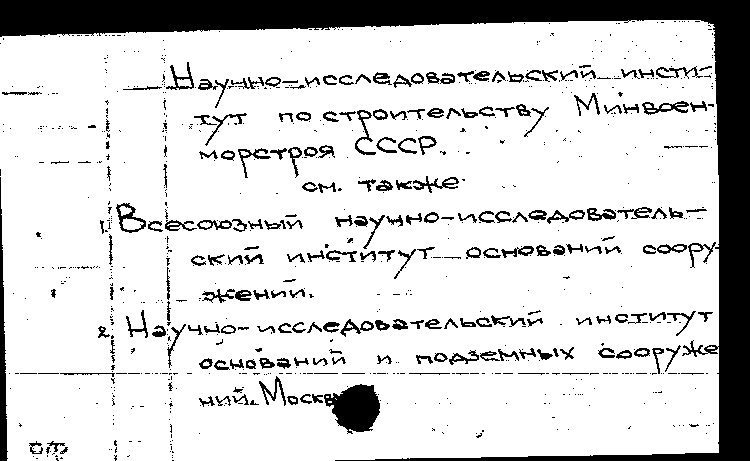 Научно-исследовательский инсти-
тут по строительству Минвоен-
морстроя СССР.
см. также
1. Всесоюзный научно-исследователь-
ский институт оснований соору-
жений.
2. Научно-исследовательский институт
оснований и подземных сооруже
ний. Москва